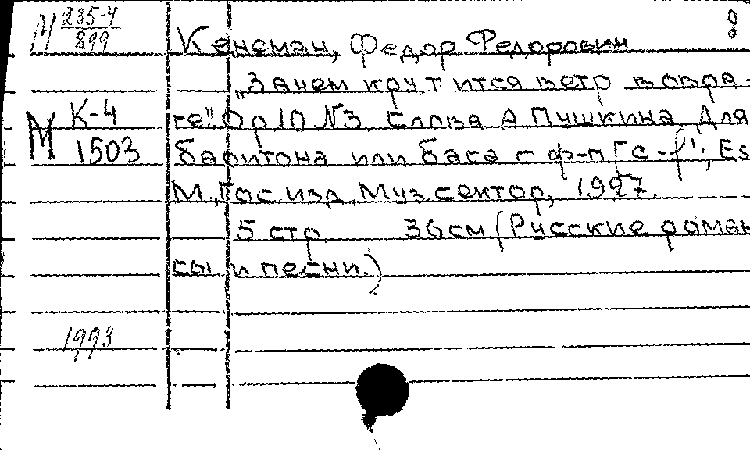 М 235-4
899
Кенеман, Федор Федорович
8
„Зачем крутится ветр в овра-
ге". Op 10 №3 Слова А Пушкина Для
М К-4
1503
баритона или баса с ф-п [c-f'; Es
М., Гос. изд. Муз. сектор, 1927.
5 стр 36 см (Русские роман
сы и песни.)
1993